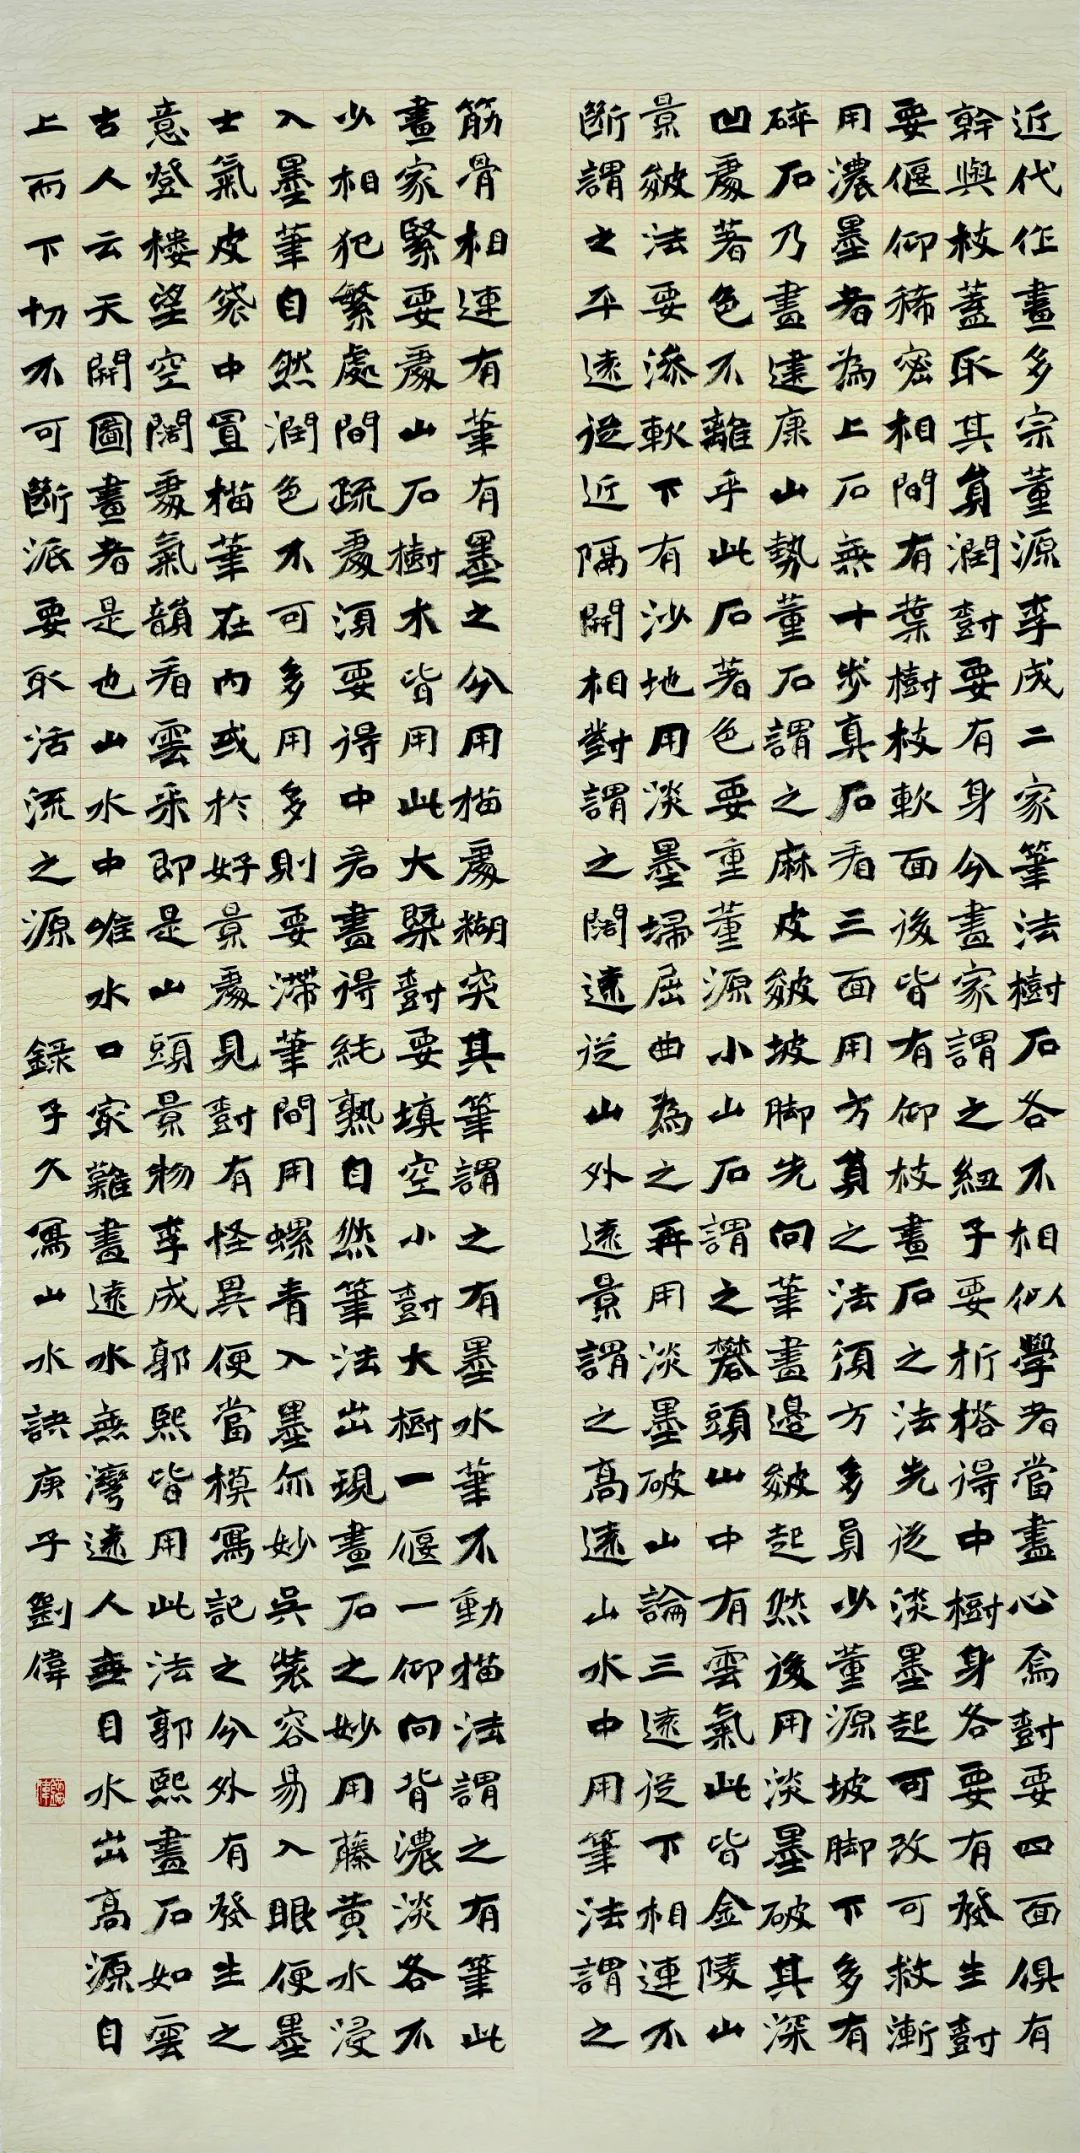 近代作畫多宗董源李成二家筆法樹石各不相似學者當盡心焉樹要四面俱有
幹與枝蓋取其員潤樹要有身分畫家謂之紐子要折搭得中樹身各要有發生樹
要偃仰稀密相間有葉樹枝軟面後皆有仰枝畫石之法先從淡墨起可改可救漸
用濃墨者為上石無十步真石看三面用方員之法須方多員少董源坡腳下多有
碎石乃畫建康山勢董石謂之麻皮皴坡腳先向筆畫邊皴起然後用淡墨破其深
凹處著色不離乎此石著色要重董源小山石謂之礬頭山中有雲氣此皆金陵山
景皴法要滲軟下有沙地用淡墨掃屈曲為之再用淡墨破山論三遠從下相連不
斷謂之平遠從近隔開相對謂之闊遠從山外遠景謂之高遠山水中用筆法謂之
筋骨相連有筆有墨之分用描處糊突其筆謂之有墨水筆不動描法謂之有筆此
畫家緊要處山石樹木皆用此大槩樹要填空小樹大樹一偃一仰向背濃淡各不
少相犯繁處間疏處須要得中若畫得純熟自然筆法出現畫石之妙用藤黃水浸
入墨筆自然潤色不可多用多則要滯筆間用螺青入墨亦妙吳裝容易入眼便墨
士氣皮袋中置描筆在內或於好景處見樹有怪異便當模寫記之分外有發生之
意登樓望空闊處氣韻看雲采即是山頭景物李成郭熙皆用此法郭熙畫石如雲
古人云天開圖畫者是也山水中唯水口家難畫遠水無灣遠人無目水出高源自
上而下切不可斷派要取活流之源 錄子久寫山水訣庚子劉偉